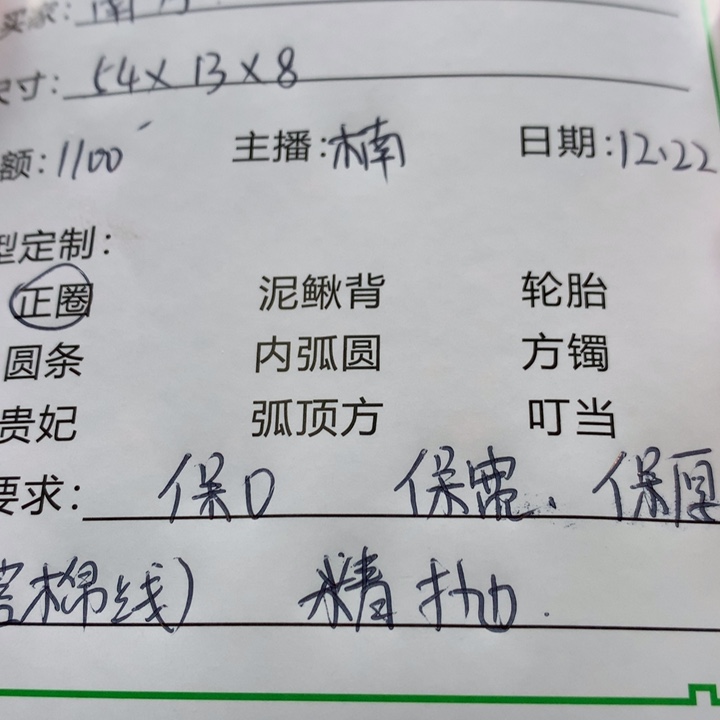 买家:
尺寸: 54×13×8
额: 1100 主播: 楠 日期: 12.22
型定制:
正圈 泥鳅背 轮胎
圆条 内弧圆 方镯
贵妃 弧顶方 叮当
要求: 保口 保宽、保厚
棉线) 精抛.